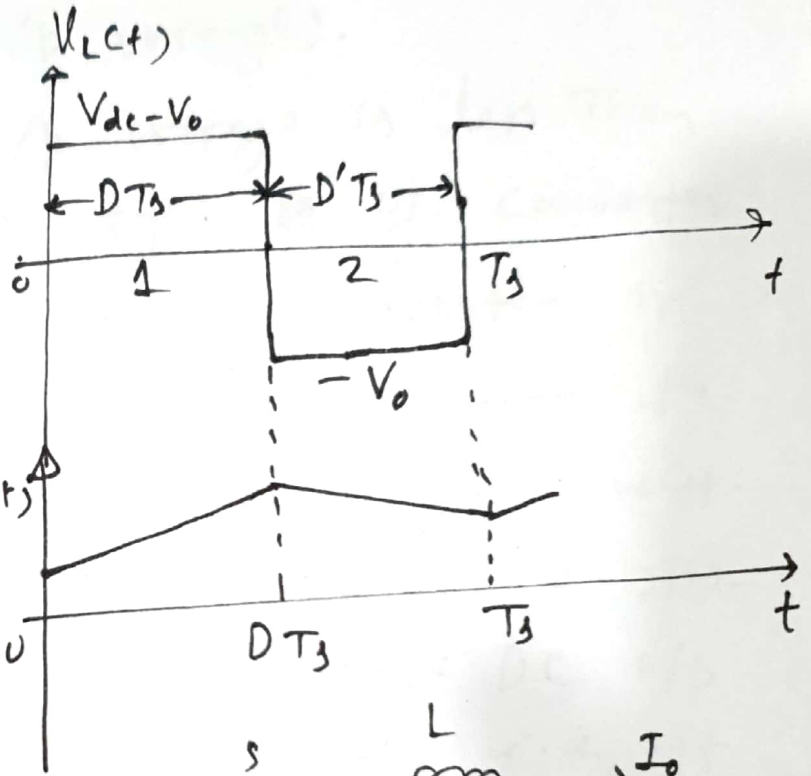 V_L(t)
V_dc-V_o
DT_s D'T_s
0 1 2 T_s t
-V_o
0 DT_s T_s t
s L I_o